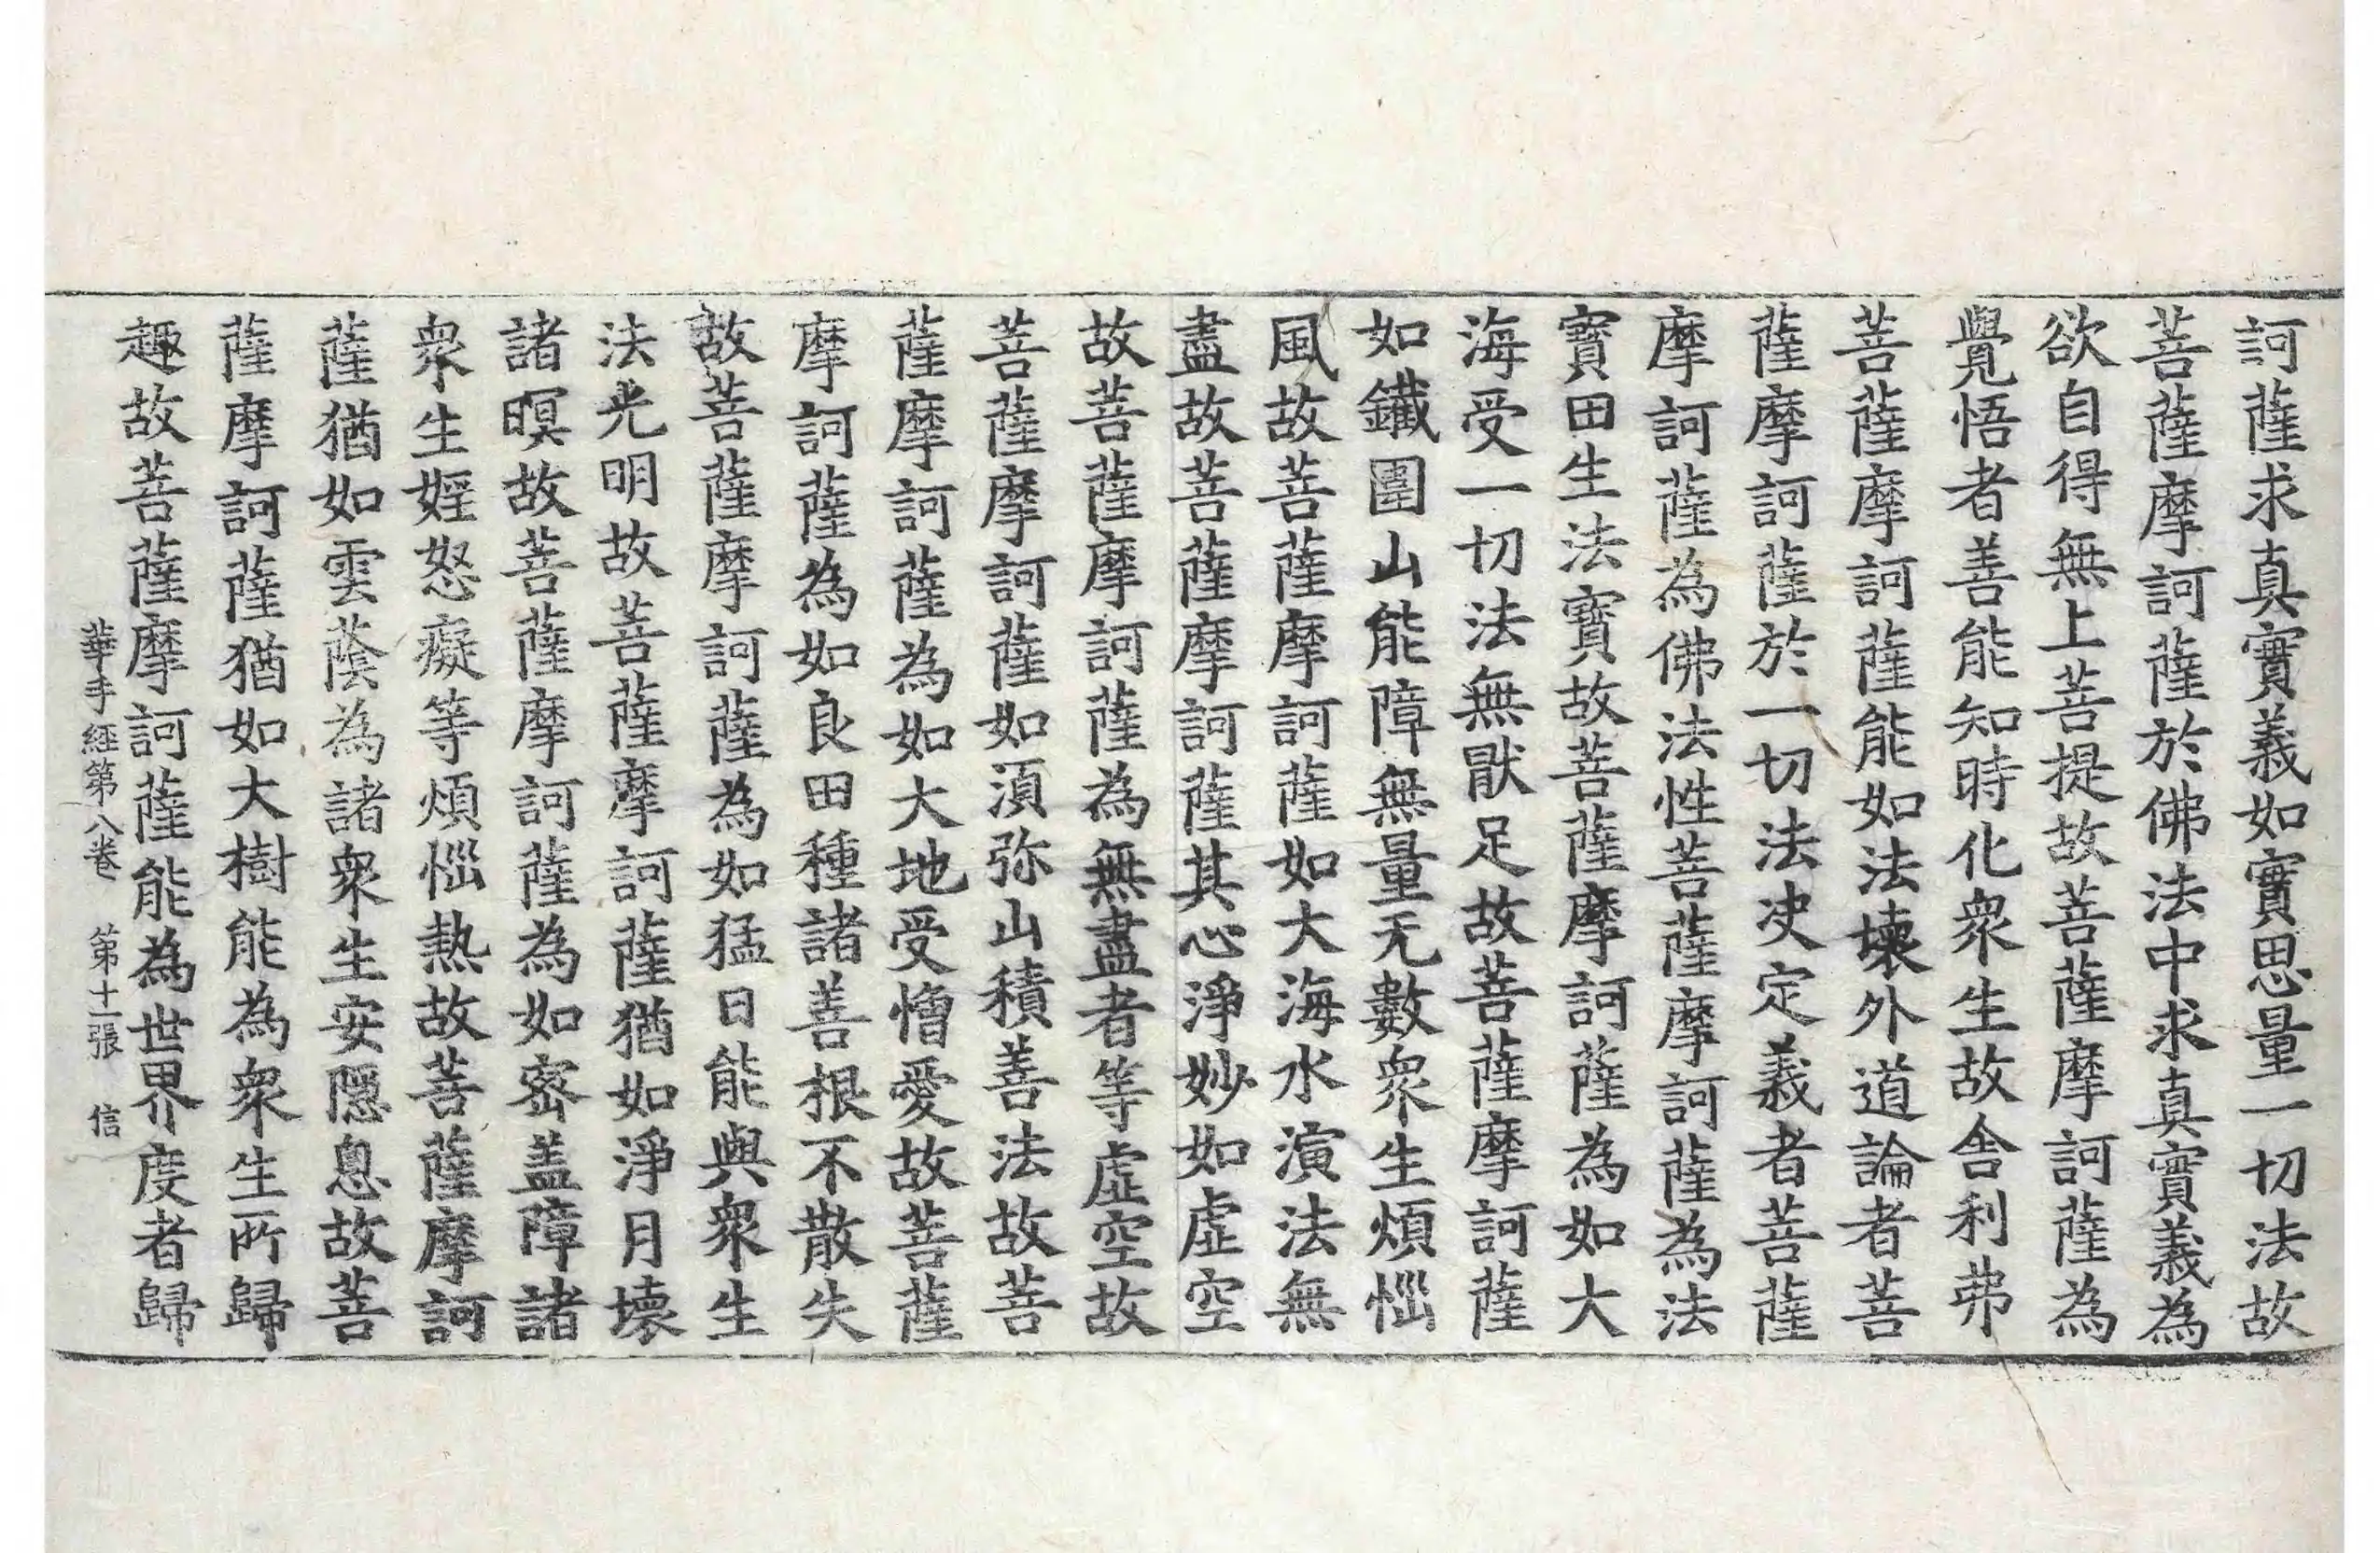 訶薩求真實義如實思量一切法故
菩薩摩訶薩於佛法中求真實義為
欲自得無上菩提故菩薩摩訶薩為
覺悟者善能知時化衆生故舍利弗
菩薩摩訶薩能如法壞外道論者菩
薩摩訶薩於一切法决定義者菩薩
摩訶薩為佛法性菩薩摩訶薩為法
寶田生法寶故菩薩摩訶薩為如大
海受一切法無猒足故菩薩摩訶薩
如鐵圍山能障無量无數衆生煩惱
風故菩薩摩訶薩如大海水演法無
盡故菩薩摩訶薩其心淨妙如虛空
故菩薩摩訶薩為無盡者等虛空故
菩薩摩訶薩如湏弥山積善法故菩
薩摩訶薩為如大地受憎愛故菩薩
摩訶薩為如良田種諸善根不散失
故菩薩摩訶薩為如猛日能與衆生
法光明故菩薩摩訶薩猶如淨月壞
諸暝故菩薩摩訶薩為如密蓋障諸
衆生婬怒癡等煩惱熱故菩薩摩訶
薩猶如雲蔭為諸衆生安隱息故菩
薩摩訶薩猶如大樹能為衆生所歸
趣故菩薩摩訶薩能為世界度者歸
華手經第八卷 第十一張 信